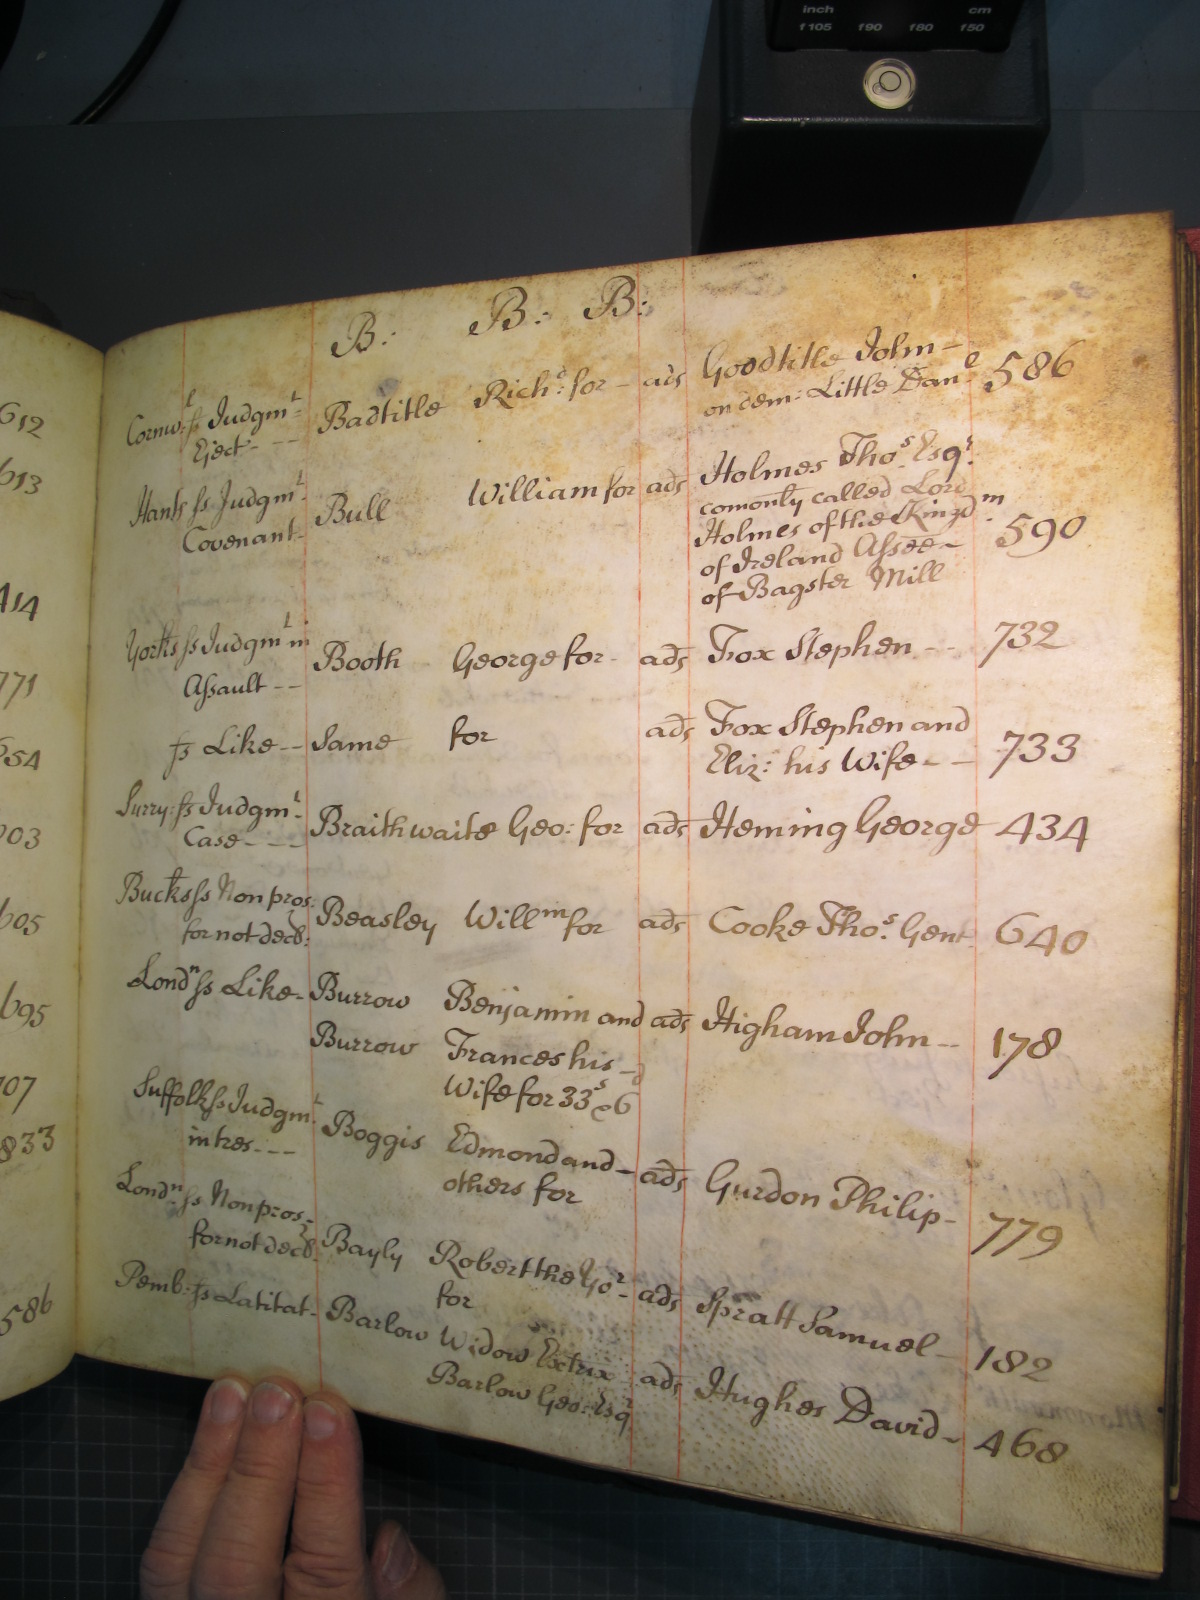 inch cm
f105 f90 f80 f50
B: B: B:
Cornw:ˡ ſs Judgmᵗ Badtitle Richᵈ: for - ads Goodtitle John - 586
Eject - - - on dem: Little Danˡ
Hants ſs Judgmᵗ Bull William for ads Holmes Thoˢ. Esqʳ. 590
Covenant - comonly called Lord
Holmes of the Kingdᵐ
of Ireland Assee -
of Bagster Mill
Yorks ſs Judgmᵗ in Booth George for - ads Fox Stephen - - 732
Assault - -
ſs Like - - Same for ads Fox Stephen and 733
Eliz: his Wife - -
Surry: ſs Judgmᵗ. Braithwaite Geo: for ads Heming George 434
Case - - -
Bucks ſs Non pros: Beasley Willᵐ for ads Cooke Thoˢ. Gent 640
for not decl:
Londⁿ ſs Like - Burrow Benjamin and ads Higham John - - 178
Burrow Frances his -
Wife for 33ˢ & 6ᵈ
Suffolk ſs Judgmᵗ Boggis Edmond and - ads Gurdon Philip - 779
in tres - - - others for
Londⁿ. ſs Non pros - Bayly Robert the Yoʳ - ads Spratt Samuel - 182
for not decl: for
Pemb: ſs Latitat - Barlow Widow Extrix ads Hughes David - 468
Barlow Geo: Esqʳ
612
613
414
771
654
703
605
695
707
833
586